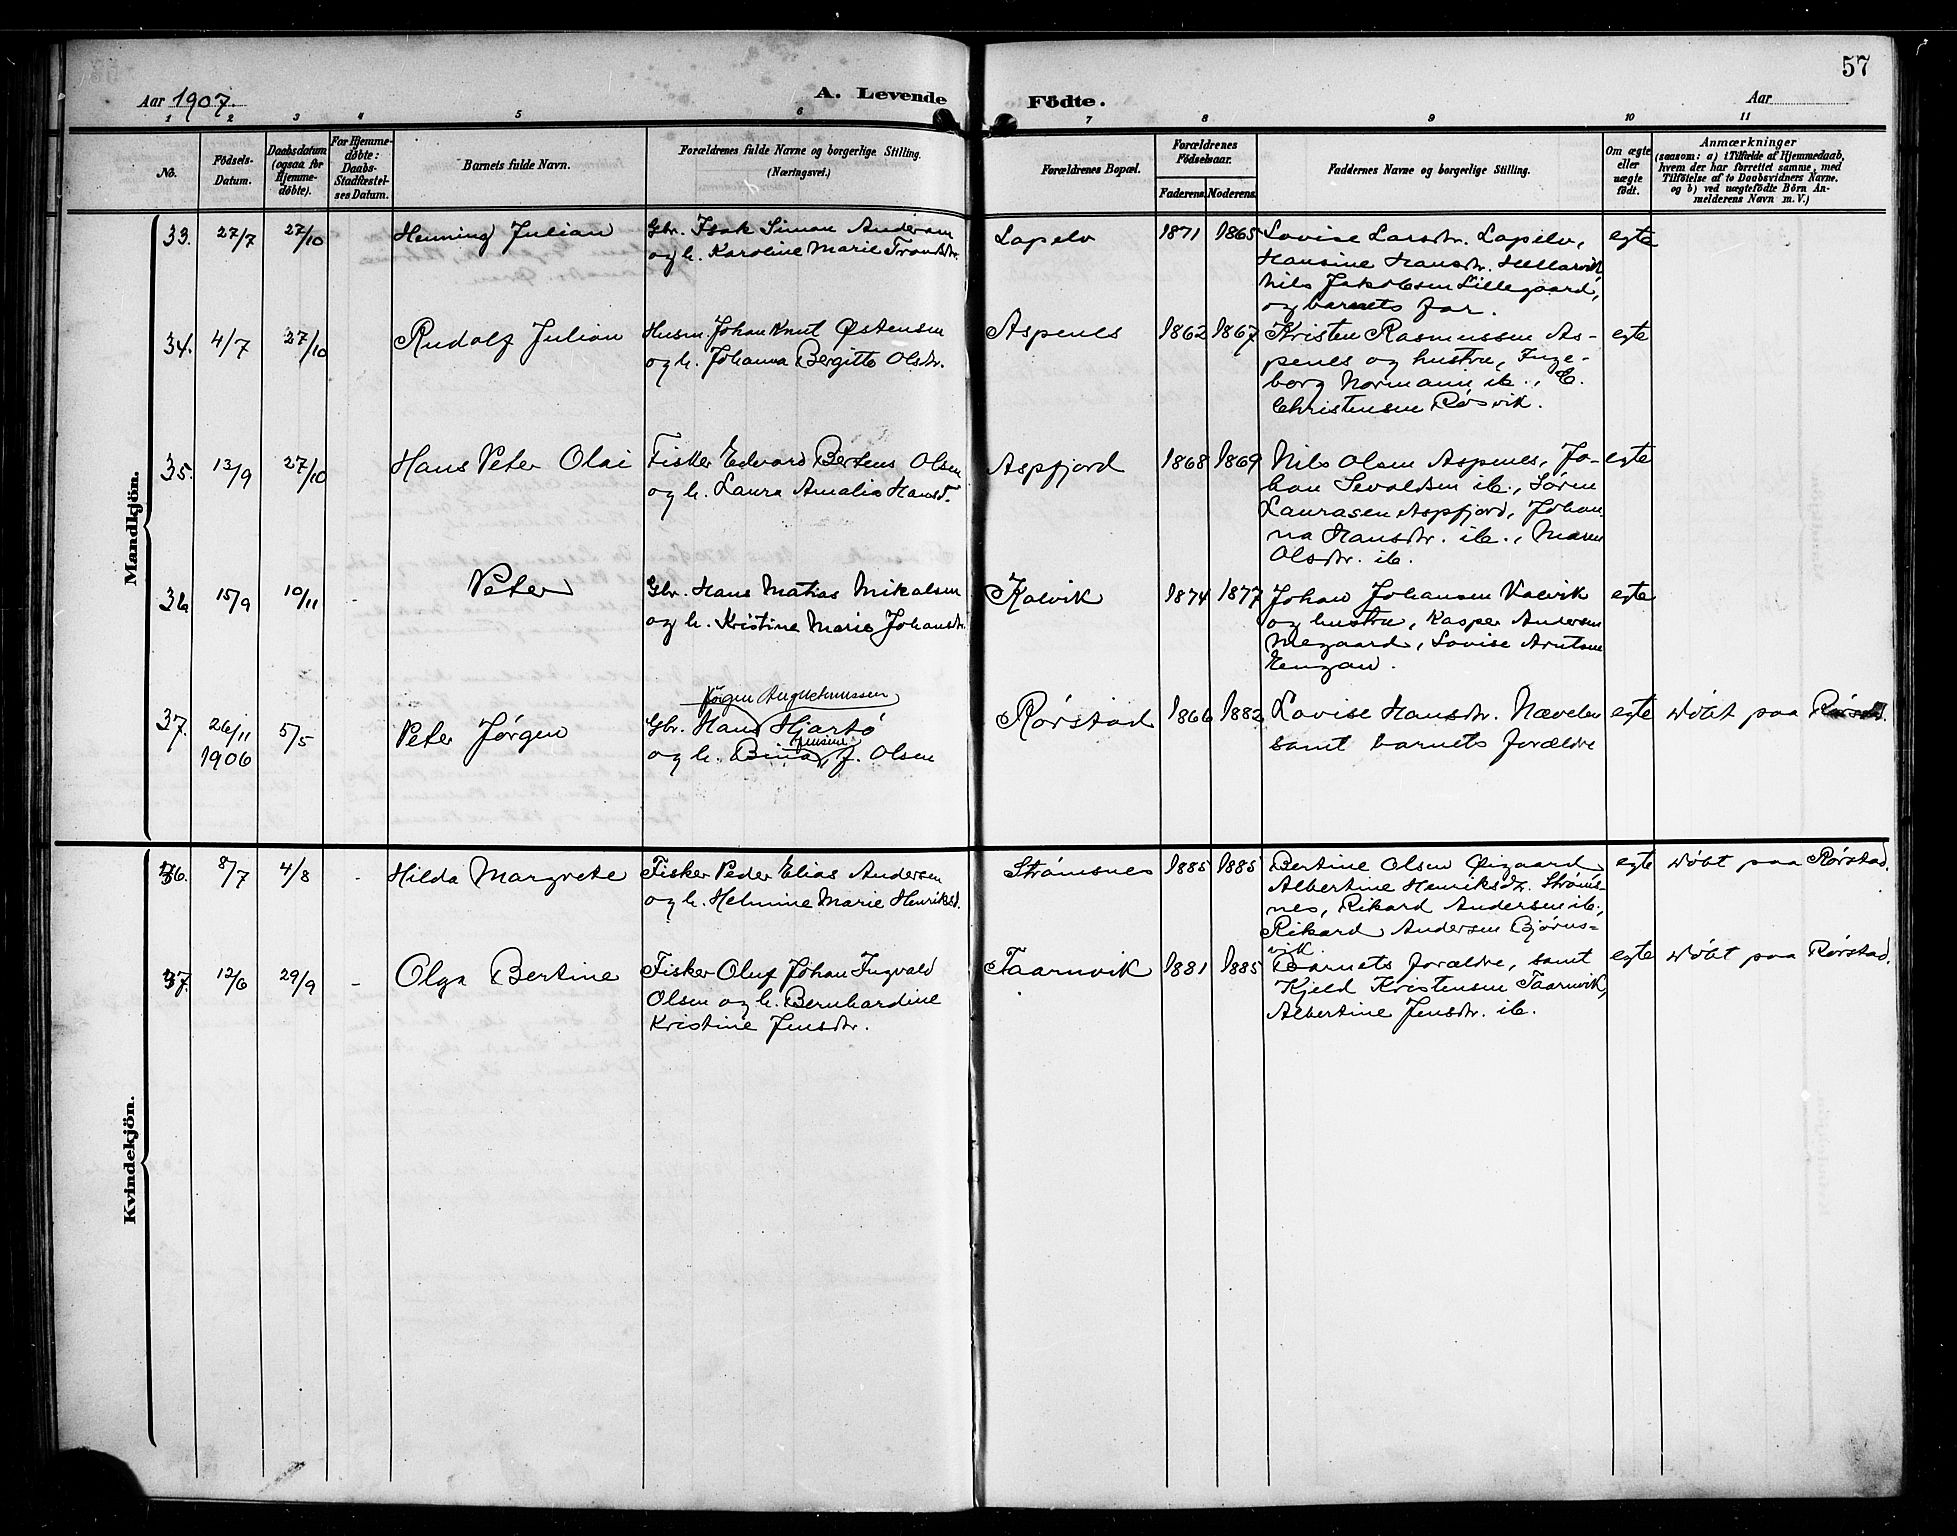 57
Aar 1907.
A. Levende
Födte.
Aar
1 2 3 4 5 6 7 8 9 10 11
No.
Födsels-
Datum.
Daabsdatum
(ogsaa for
Hjemme-
döbte).
For Hjemme-
döbte:
Daabs-
Stadfæstel-
ses Datum.
Barnets fulde Navn.
Forældrenes fulde Navne og borgerlige Stilling.
(Næringsvei.)
Forældrenes Bopæl.
Forældrenes
Födselsaar.
Faderens. Moderens.
Faddernes Navne og borgerlige Stilling.
Om ægte
eller
uægte
födt.
Anmærkninger
(saasom: a) i Tilfælde af Hjemmedaab,
hvem der har forrettet samme, med
Tilföielse af to Daabsvidners Navne,
og b) ved uægtefödte Börn An-
melderens Navn m. V.)
Mandkjön.
33. 27/7 27/10 Henning Julian
Gbr. Isak Simon Andersen
og h. Karoline Marie Trondsdtr.
Lapelv 1871 1865
Lovise Larsdtr. Lapelv,
Hansine Hansdtr. Hellarvik
Nils Jakobsen Lillegaard,
og barnets far.
egte
34. 4/7 27/10 Rudolf Julian
Husm. Johan Knut Østensen
og h. Johanna Bergitte Olsdtr.
Aspenes 1862 1867
Kristen Rasmussen As-
penes og hustru, Inge-
borg Normann ib., C.
Christensen Røsvik.
egte
35. 13/9 27/10 Hans Peter Olai
Fisker Edvard Bertens Olsen
og h. Laura Amalia Hansd.
Aspfjord 1868 1869
Nils Olsen Aspenes, Jo-
han Sevaldsen ib., Søren
Laurasen Aspfjord, Johan-
na Hansdtr. ib., Maren
Olsdtr. ib.
egte
36 15/9 10/11 - Peter
Gbr. Hans Matias Mikalsen
og h. Kristine Marie Johansdtr.
Kalvik 1874 1877
Johan Johansen Kalvik
og hustru, Kasper Andersen
Megaard, Lovise Arntsen
Engan.
egte
37. 26/11 1906 5/5 Peter Jørgen
Jörgen Augustinussen
Gbr. Hans Hjartö
Jensine
og h. Bina, J. Olsen
Rørstad 1866 1882
Lovise Hansdtr. Nævelen
samt barnets forældre
egte
Døbt paa Rørstad.
Kvindekjön.
36. 8/7 4/8 - Hilda Margrete
Fisker Peder Elias Andersen
og h. Helmine Marie Henriksd.
Strømsnes 1885 1885
Bertine Olsen Øigaard
Albertine Henriksdtr. Strøms-
nes, Rikard Andersen ib.,
Rikard Andersen Bjørns-
vik
egte
Døbt paa Rørstad.
37. 12/6 29/9 - Olga Bertine
Fisker Oluf Johan Ingvald
Olsen og h. Bernhardine
Kristine Jensdtr.
Taarnvik 1881 1885
Barnets forældre, samt
Kjeld Kristensen Taarnvik,
Albertine Jensdtr. ib.
egte
Døbt paa Rørstad.